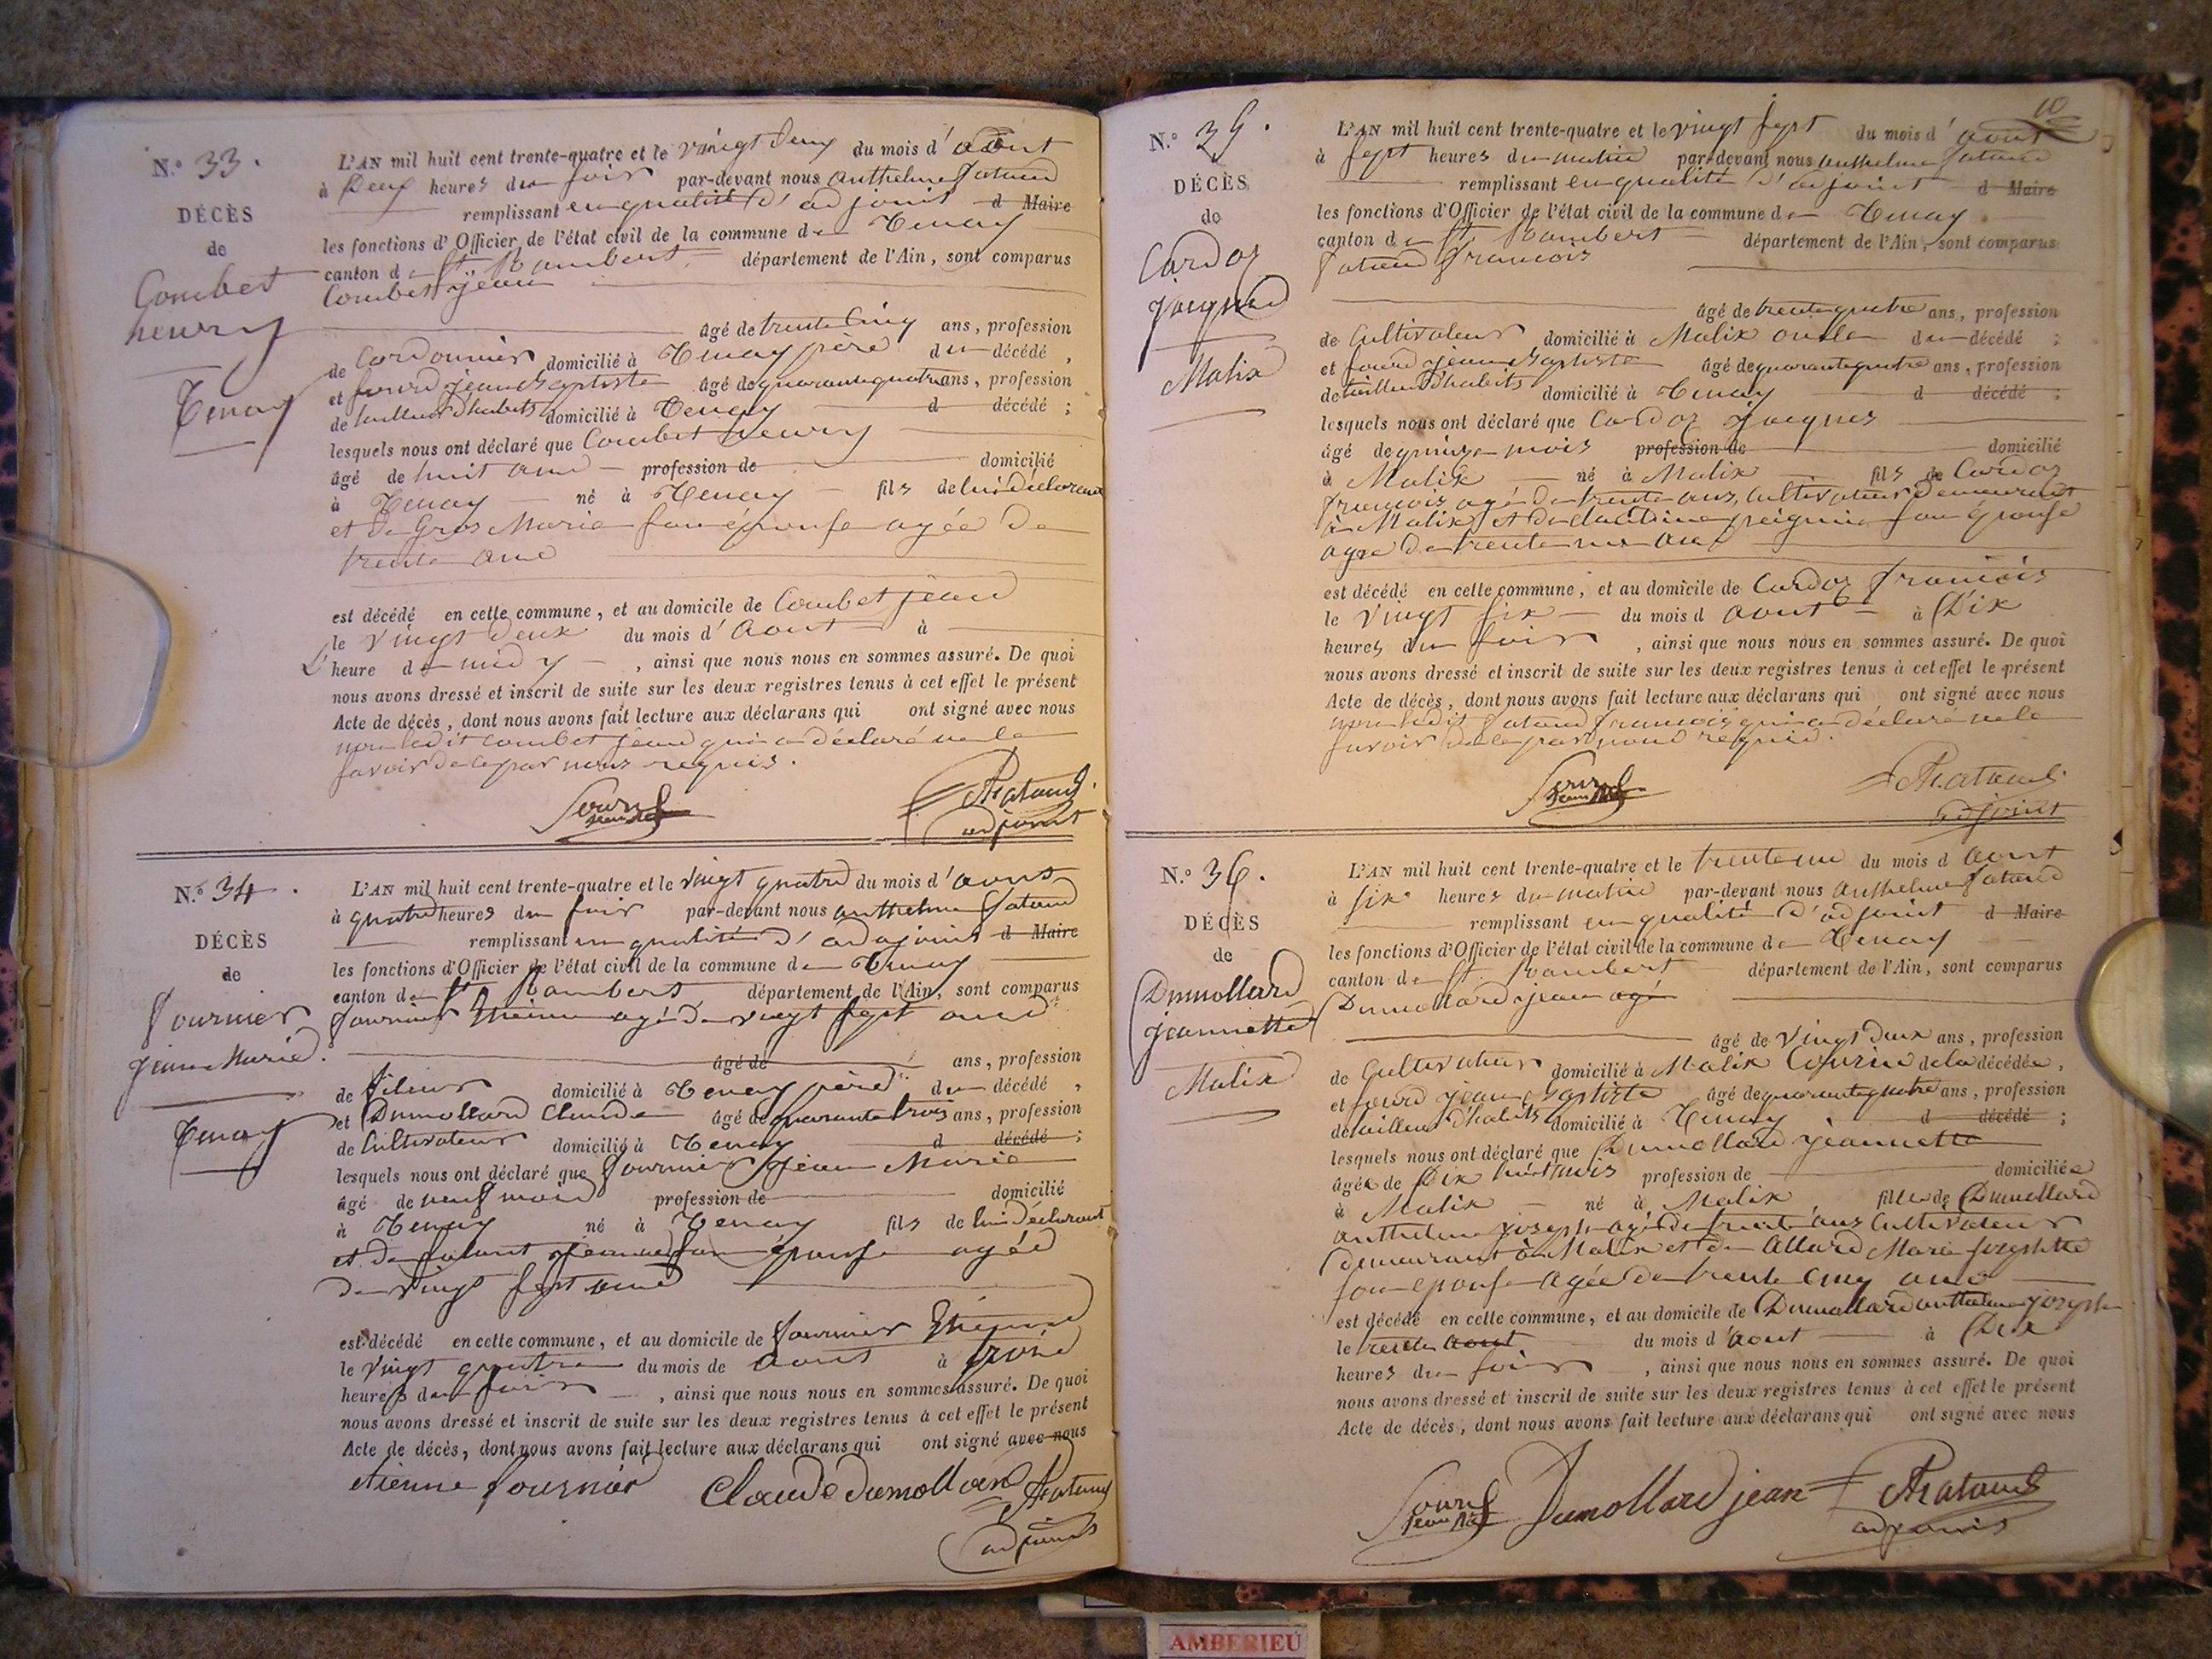 N.° 33.
DÉCÈS
de
Combet
henry
Tenay
L'AN mil huit cent trente-quatre et le vingt deux du mois d'août
à Deux heures du soir par-devant nous anthelme Rataud
remplissant en qualité d'adjoint d Maire
les fonctions d'Officier de l'état civil de la commune de Tenay
canton de St Rambert département de l'Ain, sont comparus
Combet jean
âgé de trente cinq ans, profession
de Cordonnier domicilié à Tenay père du décédé,
et jean Baptiste âgé de quarante quatre ans, profession
de tailleur d'habits domicilié à Tenay d décédé;
lesquels nous ont déclaré que Combet henry
âgé de huit ans profession de domicilié
à Tenay né à Tenay fils de lui déclarant
et de Gros Marie son épouse agée de
trente ans
est décédé en cette commune, et au domicile de Combet jean
le vingt deux du mois d'Aout à
L'heure de midy, ainsi que nous nous en sommes assuré. De quoi
nous avons dressé et inscrit de suite sur les deux registres tenus à cet effet le présent
Acte de décès, dont nous avons fait lecture aux déclarans qui ont signé avec nous
non ledit Combet jean qui a déclaré ne le
savoir de ce par nous requis.
Rataud
adjoint
N.° 34.
DÉCÈS
de
Fournier
jean Marie.
Tenay
L'AN mil huit cent trente-quatre et le vingt quatre du mois d'aout
à quatre heures du soir par-devant nous anthelme Rataud
remplissant en qualité d'adjoint d Maire
les fonctions d'Officier de l'état civil de la commune de Tenay
canton de St Rambert département de l'Ain, sont comparus
Fournier Etienne agé de vingt sept ans
âgé de ans, profession
de fileur domicilié à Tenay père du décédé,
et Dumollard Claude âgé de quarante trois ans, profession
de Cultivateur domicilié à Tenay d décédé;
lesquels nous ont déclaré que Fournier jean Marie
âgé de neuf mois profession de domicilié
à Tenay né à Tenay fils de lui déclarant
et de son épouse agée
de vingt sept ans
est décédé en cette commune, et au domicile de Fournier Etienne
le vingt quatre du mois de aout à trois
heures du soir, ainsi que nous nous en sommes assuré. De quoi
nous avons dressé et inscrit de suite sur les deux registres tenus à cet effet le présent
Acte de décès, dont nous avons fait lecture aux déclarans qui ont signé avec nous
etienne fournier Claude dumollard Rataud
adjoint
10
N.° 35.
DÉCÈS
de
Cordoz
jacques
Malix
L'AN mil huit cent trente-quatre et le vingt sept du mois d'aout
à sept heures du matin par-devant nous anthelme Rataud
remplissant en qualité d'adjoint d Maire
les fonctions d'Officier de l'état civil de la commune de Tenay
canton de St Rambert département de l'Ain, sont comparus
Rataud francois
âgé de trente quatre ans, profession
de Cultivateur domicilié à Malix oncle du décédé;
et jean Baptiste âgé de quarante quatre ans, profession
de tailleur d'habits domicilié à Tenay d décédé;
lesquels nous ont déclaré que Cordoz jacques
âgé de quinze mois profession de domicilié
à Malix né à Malix fils de Cordoz
francois agé de trente ans, Cultivateur demeurant
à Malix et de Claudine son épouse
agée de trente ans
est décédé en cette commune, et au domicile de Cordoz francois
le vingt six du mois d aout à Dix
heures du soir, ainsi que nous nous en sommes assuré. De quoi
nous avons dressé et inscrit de suite sur les deux registres tenus à cet effet le présent
Acte de décès, dont nous avons fait lecture aux déclarans qui ont signé avec nous
non ledit Rataud francois qui a déclaré ne le
savoir de ce par nous requis.
Rataud
adjoint
N.° 36.
DÉCÈS
de
Dumollard
jeannette
Malix
L'AN mil huit cent trente-quatre et le trente un du mois d aout
à six heures du matin par-devant nous anthelme Rataud
remplissant en qualité d'adjoint d Maire
les fonctions d'Officier de l'état civil de la commune de Tenay
canton de St Rambert département de l'Ain, sont comparus
Dumollard jean agé
âgé de vingt deux ans, profession
de Cultivateur domicilié à Malix Cousin de la décédée,
et jean Baptiste âgé de quarante quatre ans, profession
de tailleur d'habits domicilié à Tenay d décédé;
lesquels nous ont déclaré que Dumollard jeannette
âgée de Dix huit mois profession de domiciliée
à Malix né à Malix fille de Dumollard
anthelme joseph agé de trente ans Cultivateur
demeurant à Malix et de Allard Marie josephte
son épouse agée de trente cinq ans
est décédé en cette commune, et au domicile de Dumollard anthelme joseph
le trente aout du mois d'aout à Dix
heures du soir, ainsi que nous nous en sommes assuré. De quoi
nous avons dressé et inscrit de suite sur les deux registres tenus à cet effet le présent
Acte de décès, dont nous avons fait lecture aux déclarans qui ont signé avec nous
Dumollard jean Rataud
adjoint
AMBERIEU